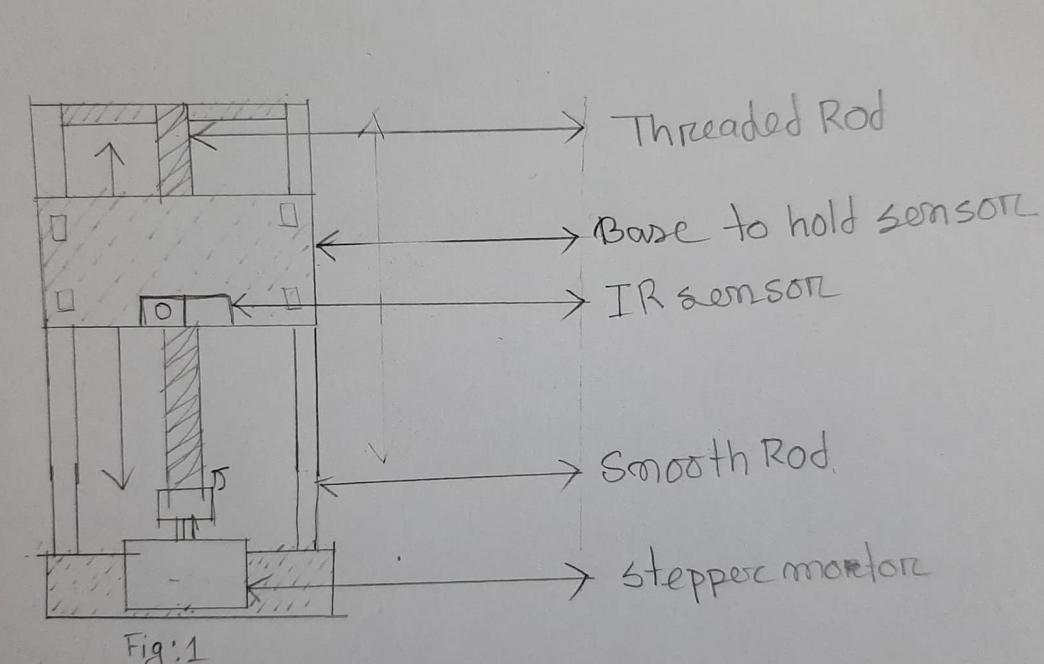 Threaded Rod
Base to hold sensor
IR sensor
Smooth Rod.
stepper mortor
Fig:1